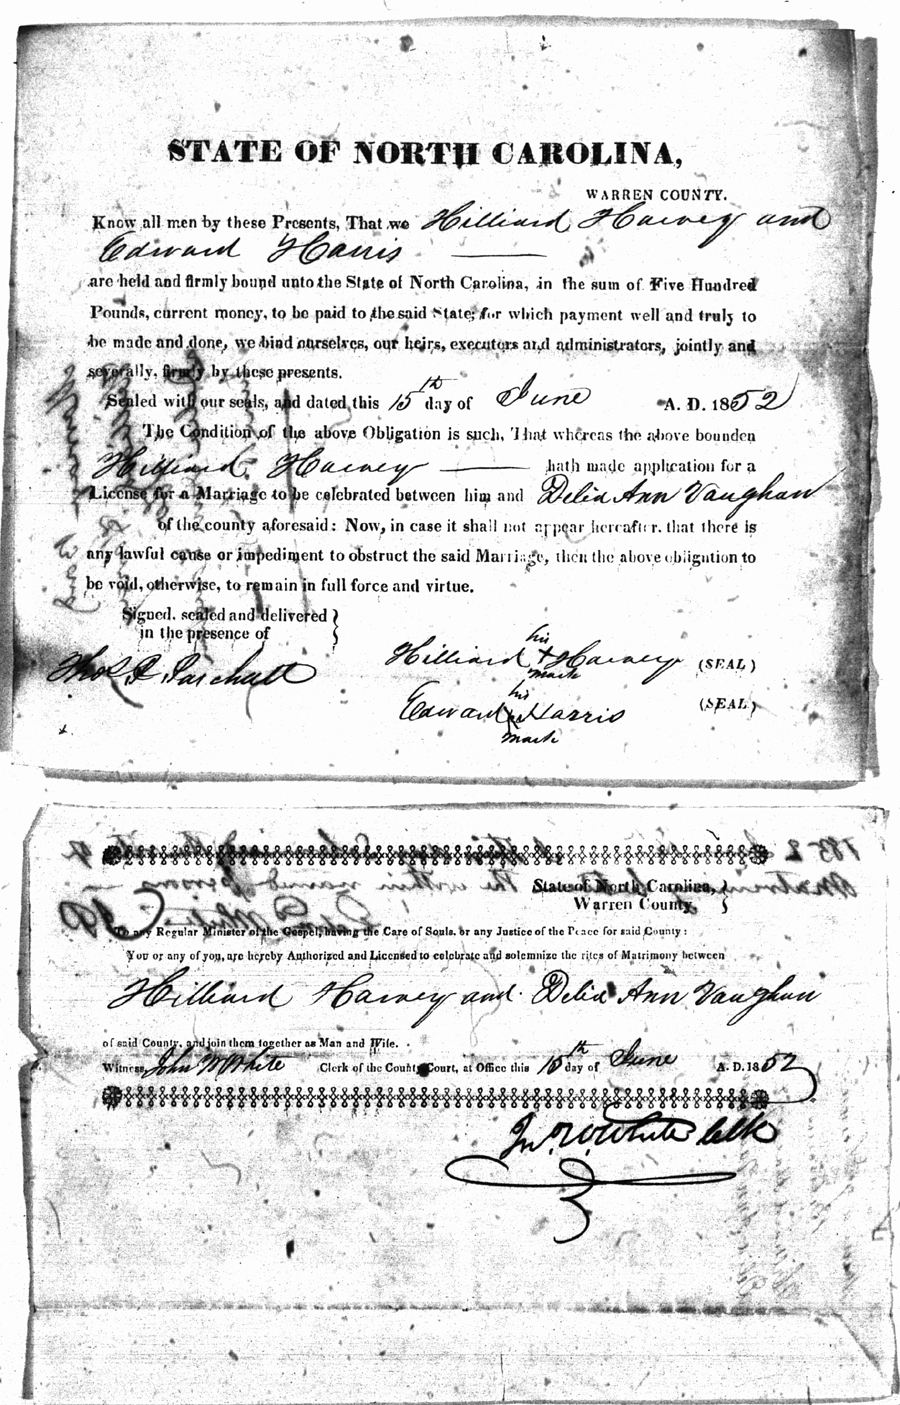 STATE OF NORTH CAROLINA,
WARREN COUNTY.
Know all men by these Presents, That we Hilliard Harvey and
Edward Harris
are held and firmly bound unto the State of North Carolina, in the sum of Five Hundred
Pounds, current money, to be paid to the said State; for which payment well and truly to
be made and done, we bind ourselves, our heirs, executors and administrators, jointly and
severally, firmly by these presents.
Sealed with our seals, and dated this 15th day of June A. D. 1852
The Condition of the above Obligation is such, That whereas the above bounden
Hilliard Harvey hath made application for a
License for a Marriage to be celebrated between him and Delia Ann Vaughan
of the county aforesaid: Now, in case it shall not appear hereafter, that there is
any lawful cause or impediment to obstruct the said Marriage, then the above obligation to
be void, otherwise, to remain in full force and virtue.
Signed, sealed and delivered
in the presence of
his
Hilliard + Harvey (SEAL)
mark
Thos P. Paschall
his
Edward x Harris (SEAL)
mark
State of North Carolina,
Warren County.
To any Regular Minister of the Gospel, having the Care of Souls, or any Justice of the Peace for said County:
You or any of you, are hereby Authorized and Licensed to celebrate and solemnize the rites of Matrimony between
Hilliard Harvey and Delia Ann Vaughan
of said County, and join them together as Man and Wife.
Witness, John W White Clerk of the County Court, at Office this 15th day of June A. D. 1852
Jn. W. White Clk